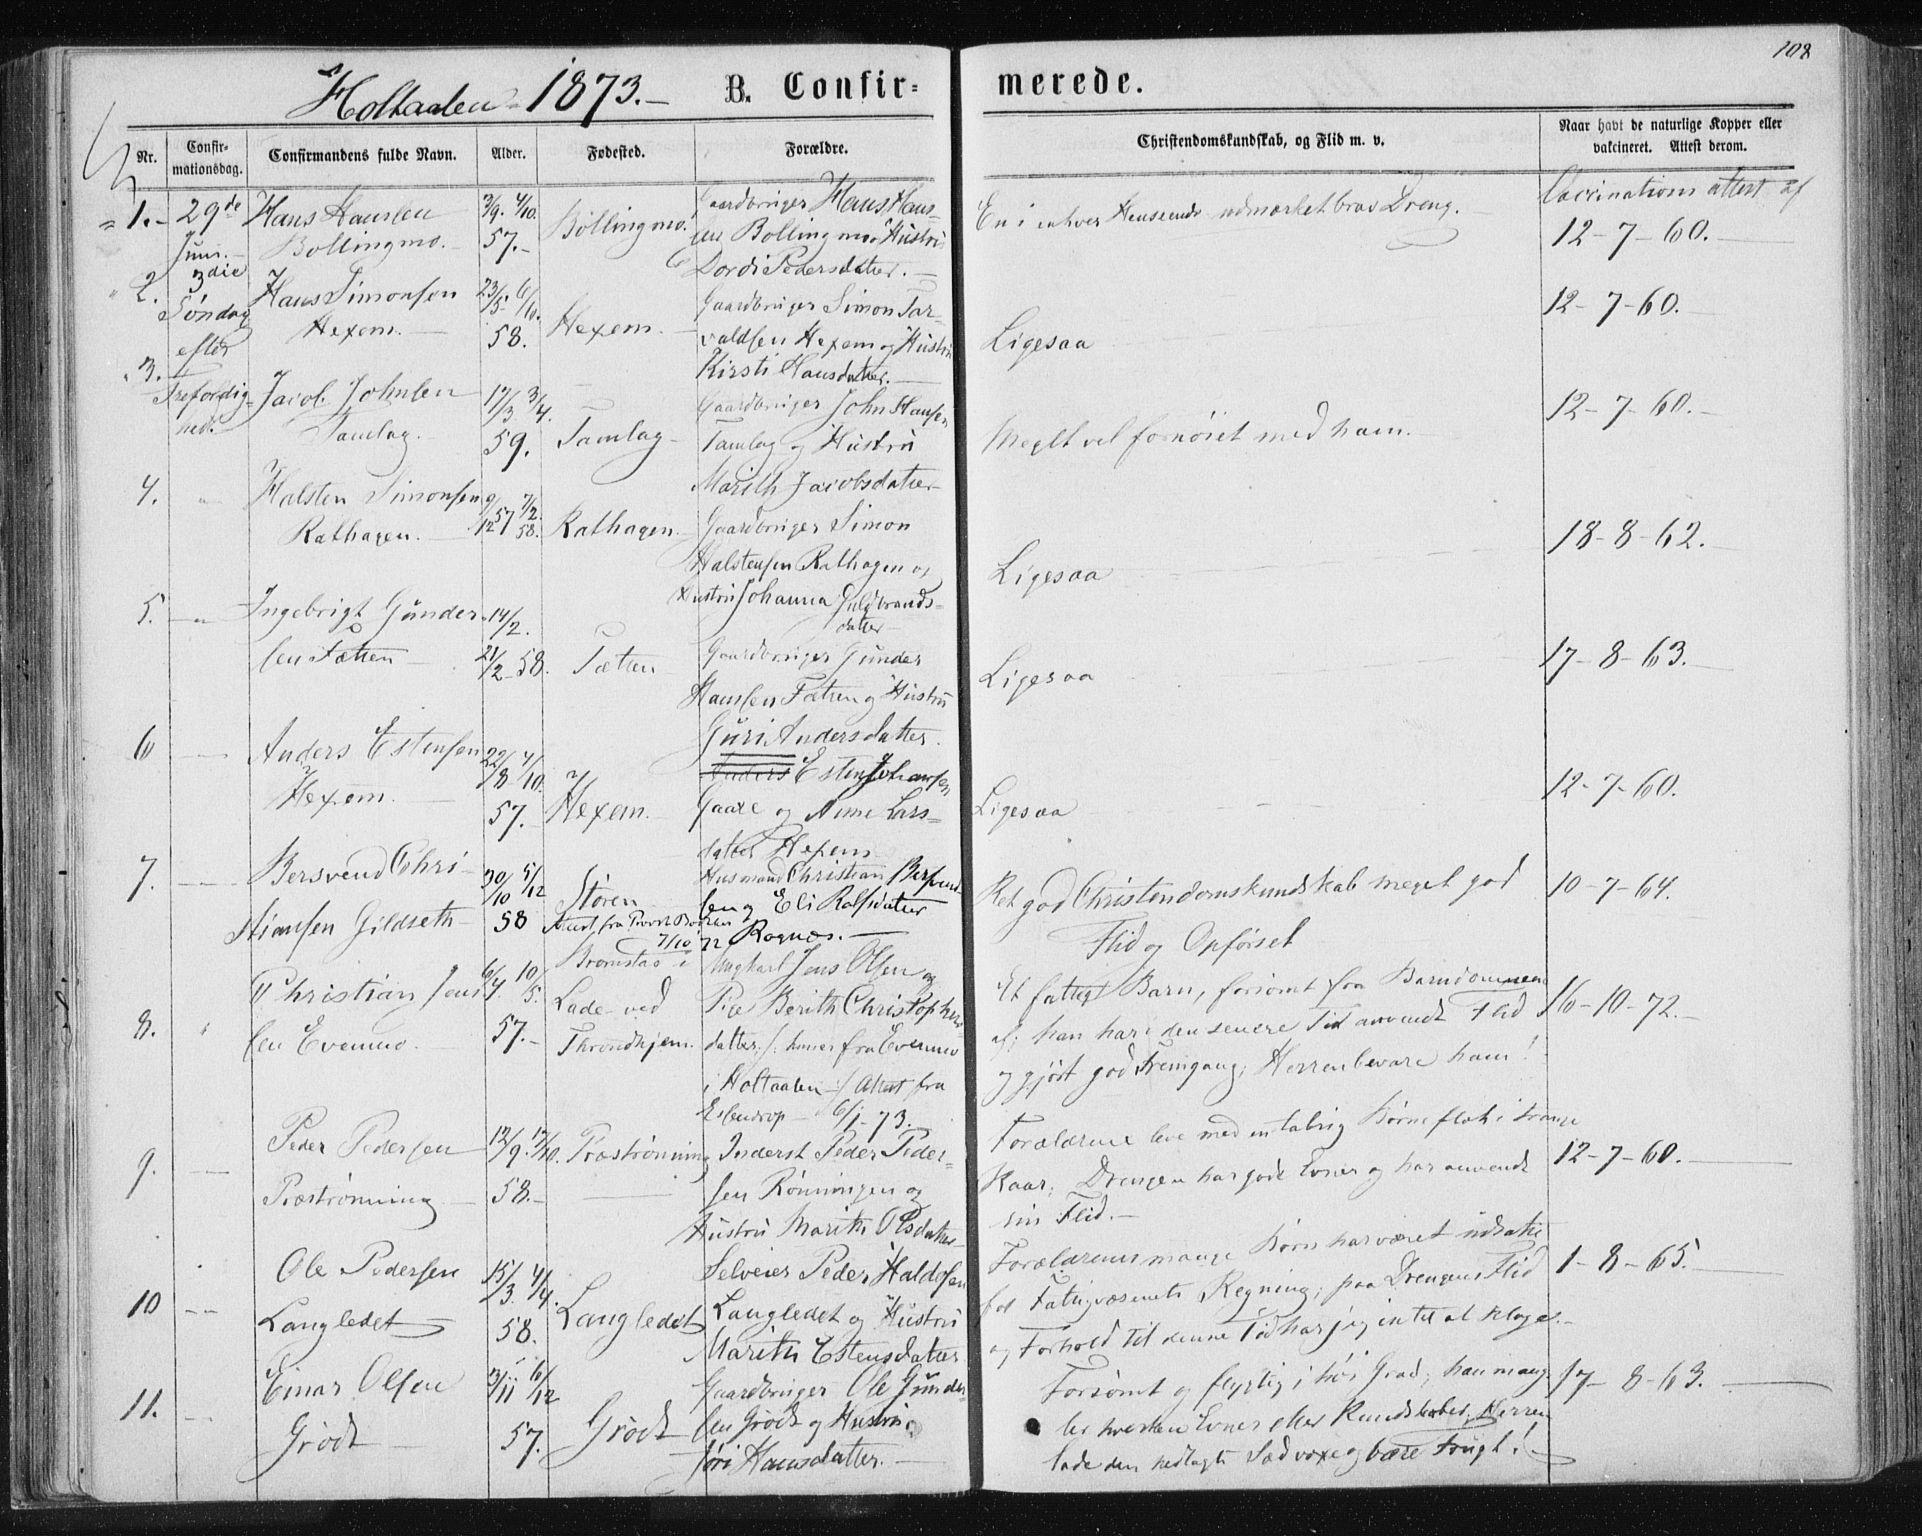 108
Holtaalen 1873.- B. Confirmerede.
Nr. Confirmationsdag. Confirmandens fulde Navn. Alder. Fødested. Forældre. Christendomskundskab, og Flid m. v. Naar havt de naturlige Kopper eller vakcineret. Attest derom.
1. 29de Juni. Hans Hansen 4/10. Gaardbruger Hans Han- En i enhver Henseende udmærket brav Dreng. Vaccinations attest af
Bollingmo. 57. Bollingmo. sen Bollingmo Hustru 12-7-60.
Dordi Pedersdatter.
2. 3die Søndag efter Hans Simonsen 23/5 6/6. Gaardbruger Simon Tor- 12-7-60.
Hexem. 58. Hexem. valdsen Hexem og Hustru Ligesaa
Kirsti Hansdatter.
3. Trefoldighed. Jacob Johnsen 17/3 3/4. Gaardbruger John Hansen 12-7-60.
Tamlag. 59. Tamlag Tamlag og Hustru Meget vel fornøiet med ham.
Marith Jacobsdatter
4. Halsten Simonsen 9/12 57 7/2. 58. Gaardbruger Simon 18-8-62.
Rathagen. Rathagen Halstensen Rathagen og Ligesaa
Hustru Johanna Guldbrands-
datter
5. Ingebrigt Gunder- 14/2. Gaardbruger Gunder 17-8-63.
sen Tætten 21/2 58. Tætten Hansen Tætten og Hustru Ligesaa
Guri Andersdatter.
6 Anders Estensen 22/8 4/10. Anders Esten Johansen
Hexem. 57. Hexem. Gaare og Anne Lars- Ligesaa 12-7-60.
datter Hexem
7. Bersvend Chri- 30/10 5/12 Husmand Christian Bersvend- Ret god Christendomskundskab meget god 10-7-64.
stiansen Gildseth 58 Støren sen og Eli Rolfsdatter Flid og Opførsel
Attest fra Provst 7/10 72 Rognæs.
8. Christian Jens- 6/4. 10/5. Bromstad i Ungkarl Jens Olsen og Et fattigt Barn, forsømt fra Barndommen 16-10-72.
sen Evenmo. 57. Lade ved Pie Berith Christopher- af; han har i den senere Tid anvendt Flid
Throndhjem. datter /: hun er fra Evenmo og gjort god Fremgang; Herren bevare ham!
i Holtaalen :/ Attest fra
6/1-73.
9. Peder Pedersen 12/9. 17/10. Præstrønning Inderst Peder Peder- Forældrene leve med en talrig Børneflok i trange 12-7-60.
Præstrønning 58. sen Rønningen og Kaar; Drengen har gode Evner og har anvendt
Hustru Marith Olsdatter sin Flid.
10 Ole Pedersen 15/3. 4/4. Selveier Peder Haldosen Forældrenes mange Børn har været udsatte 1-8-65.
Langledet 58. Langledet Langledet og Hustru for Fattigvæsenets Regning; paa Drengens Flid
Marith Estensdatter og Forhold til denne Tid har jeg intet at klage.
11. Einar Olsen 3/11 6/12 Gaardbruger Ole Gunder- Forsømt og flygtig i høi Grad; han mang- 17-8-63.
Grødt 57. Grødt sen Grødt og Hustru ler hverken Evner eller Kundskaber; Herren
Jøri Hansdatter. lade den nedlagte Sæd voxe og bære Frugt!